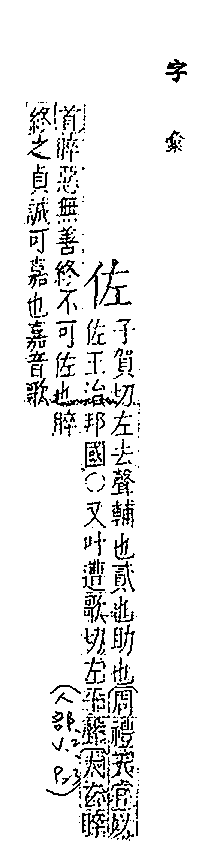 字彙
佐
子賀切左去聲輔也貳也助也周禮天官以
佐王治邦國○又叶遭歌切左平聲太玄晬
首晬惡無善終不可佐也晬
終之貞誠可嘉也嘉音歌
(人部
V.2
P.3)